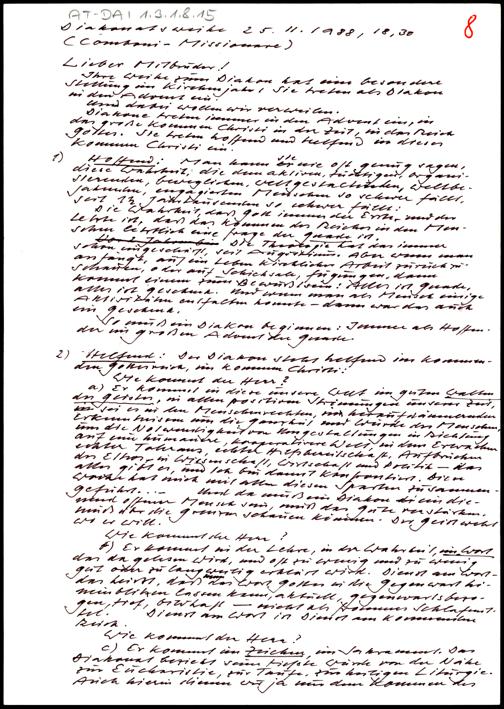 AT-DAI 1.3.1.8.15
8
Diakonatsweihe 25. 11. 1988, 18,30
(Comboni-Missionare)
Lieber Mitbrüder!
Ihre Weihe zum Diakon hat eine besondere
Stellung im Kirchenjahr: Sie treten als Diakon
in den Advent ein.
Und dabei wollen wir verweilen.
Diakone treten immer in den Advent ein, in
das große Kommen Christi in der Zeit, in das Reich
Gottes. Sie treten hoffend und helfend in dieses
Kommen Christi ein.
1) Hoffend: Man kann sie nie oft genug sagen,
diese Wahrheit, die dem aktiven, tätigen, organi-
sierenden, beweglichen, weltgestaltenden, weltbe-
jahenden, engagierten Menschen so schwer fällt,
seit Jahrtausenden so schwer fällt:
Die Wahrheit, daß Gott immer der Erste und der
Letzte ist, daß das Kommen des Reiches in den Men-
schen letztlich eine Frage der Gnade ist.
Die Theologie hat das immer
schon ausgedrückt, seit Augustinus. Aber wenn man
anfängt, auf ein Leben kirchlicher Arbeit zurückzu-
schauen, oder auf Schicksale, Fügungen, dann
kommt einem zum Bewußtsein: Alles ist Gnade,
alles ist Geschenk. Und wenn man als Mensch einige
Aktivitäten entfalten konnte – dann war das auch
ein Geschenk.
So muß ein Diakon beginnen: Immer als Hoffen-
der im großen Advent der Gnade.
2) Helfend: Der Diakon steht helfend im kommen-
den Gottesreich, im kommen Christi:
Wie kommt der Herr?
a) Er kommt in diese unsere Welt im guten Walten
des Geistes, in allen positiven Strömungen unserer Zeit,
sei es in den Menschenrechten, im
Erkenntnissen um die Freiheit und Würde des Menschen,
um die Notwendigkeit von in Richtung
auf eine humanere, kooperativere Welt, in dem Erwachen
echter Toleranz, echter Hilfsbereitschaft, Aufbrüchen
des Ethos in Wissenschaft, Wirtschaft und Politik – das
alles gibt es, und ich bin damit konfrontiert. Diese
Woche hat mich mit allen diesen Sparten zusammen-
geführt. .– Und da muß ein Diakon ein
und offener Mensch sein, muß das Gute verstärken,
muß über die Grenzen schauen können. Der Geist weht
wo er will.
Wie kommt der Herr?
b) Er kommt in der Lehre, in der Wahrheit, im Wort,
das da gelesen wird, und oft zu wenig und zu wenig
gut oder zu langweilig erklärt wird. Dienst am Wort –
das heißt, daß man das Wort Gottes in die Gegenwart hi-
neinblitzen lassen kann, aktuell, gegenwartsbezo-
gen, tief, bildhaft – nicht als frommes Schlafmit-
tel. Dienst am Wort ist Dienst am kommenden
Reich.
Wie kommt der Herr?
c) Er kommt im Zeichen, im Sakrament. Das
Diakonat bezieht seine tiefste Würde von der Nähe
zur Eucharistie, zur Taufe, zur heiligen Liturgie.
Auch hierin dienen wir ja nur dem Kommen des